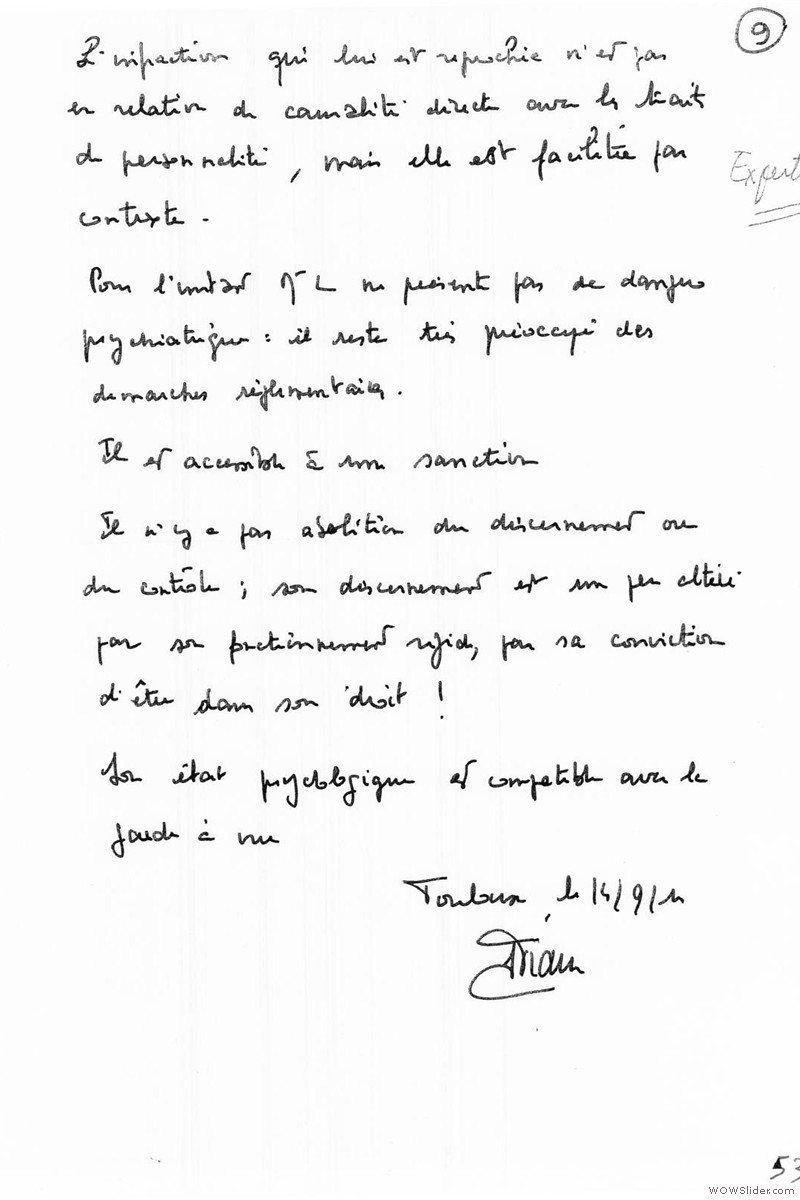 9
L'infraction qui lui est reprochée n'est pas
en relation de causalité directe avec les traits
de personnalité, mais elle est facilitée par
contexte.
Expert
Pour l'instant Mr L ne présente pas de danger
psychiatrique : il reste très préoccupé des
démarches réglementaires.
Il est accessible à une sanction
Il n'y a pas abolition du discernement ou
du contrôle ; son discernement est un peu altéré
par son fonctionnement rigide, par sa conviction
d'être dans son droit !
Son état psychologique est compatible avec la
garde à vue
Toulouse, le 14/9/
53
WOWSlider.com